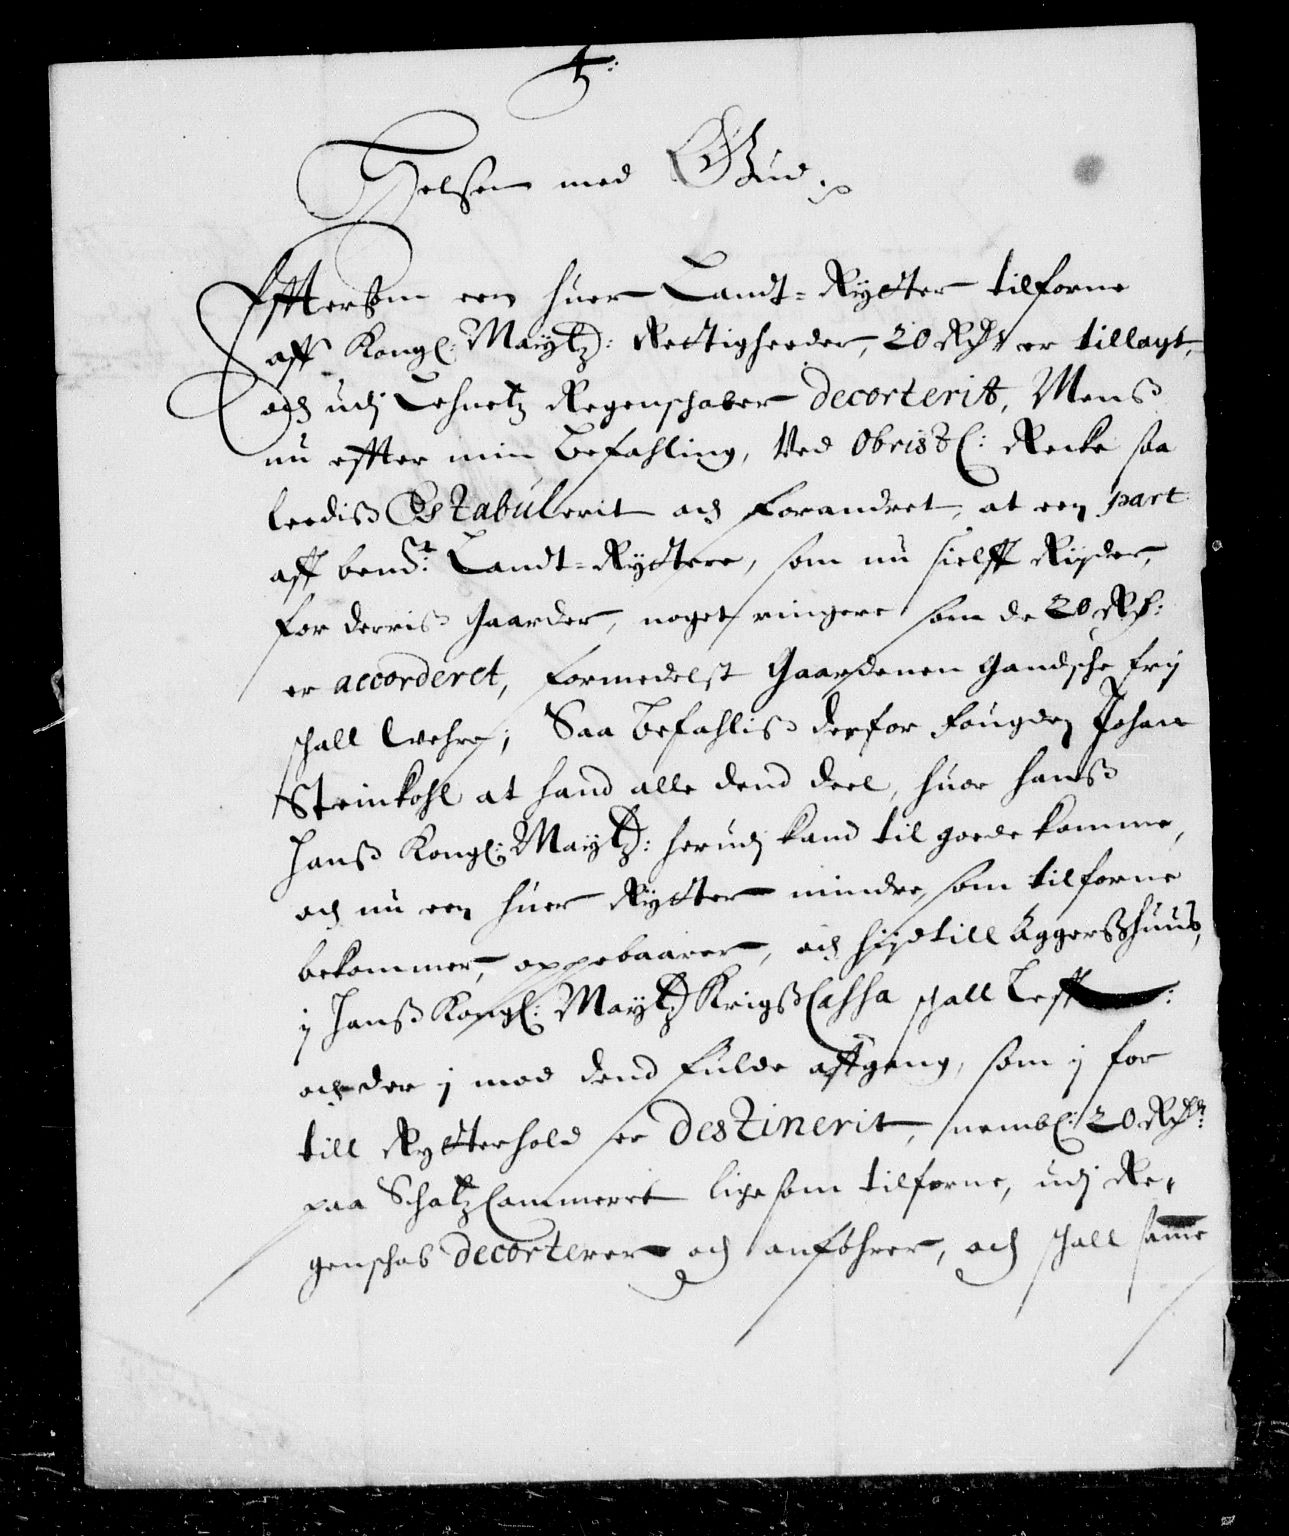 Helsen med Gud.
Effterßom een huer Landt-Rytter tilforne
aff Kongl: Maytz: Rettigheeder, 20 Rdr er tillagt,
och udj Lehnetz Regenschaber decorterit, Menß
nu effter min befahling, ved Obristl: Recke saa
leediß Estabulerit och forandret, at een part
aff bend.t Landt-Ryttere, som nu sielff Ryder,
for derriß Gaarder, noget ringere som de 20 Rd:
er accorderet, formedelst Gaardenen gandsche frij
schall wehre; Saa befahliß derfor fougden Johan
Steinkohl at hand alle dend deel, huor hanß
Hanß Kongl: Maytz: herudj kand til goede komme,
och nu een huer Rytter mindre, som tilforne
bekommer, oppebaarer, och hijd till Aggerßhuus,
ij Hanß Kongl: Maytz Krigß Cassa schall leff:
och der j mod dend fulde affgang, som ij for
till Rytterhold er destinerit, nembl: 20 Rdr:
paa SchatzCammeret lige som tilforne, udj Re-
genschab decorterer och anföhrer, och schall same